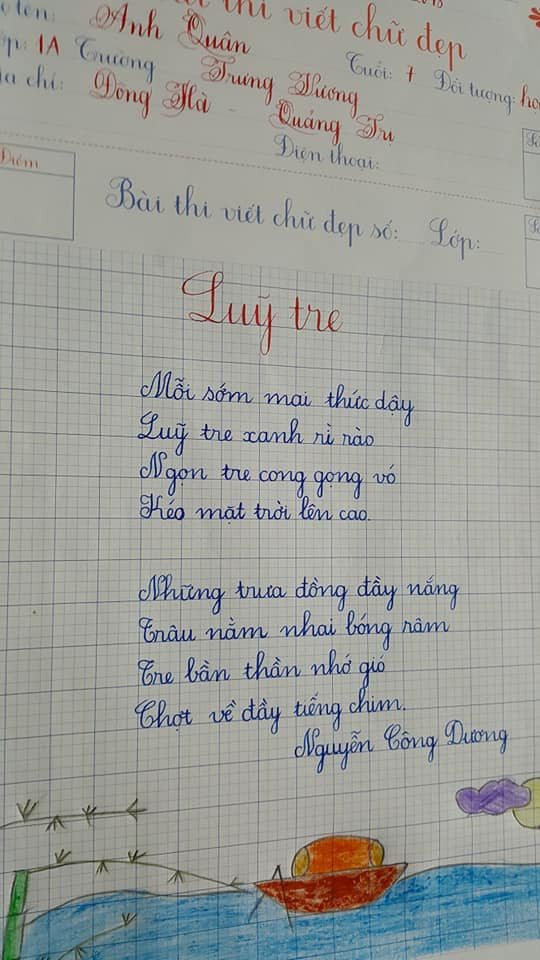 thi viết chữ đẹp
tên: Anh Quân
Tuổi: 7 Đối tượng:
1A Trường Trưng Vương
chỉ: Đông Hà - Quảng Trị
Điện thoại:
Điểm
Bài thi viết chữ đẹp số: Lớp:
Luỹ tre
Mỗi sớm mai thức dậy
Luỹ tre xanh rì rào
Ngọn tre cong gọng vó
Kéo mặt trời lên cao.
Những trưa đồng đầy nắng
Trâu nằm nhai bóng râm
Tre bần thần nhớ gió
Chợt về đầy tiếng chim.
Nguyễn Công Dương